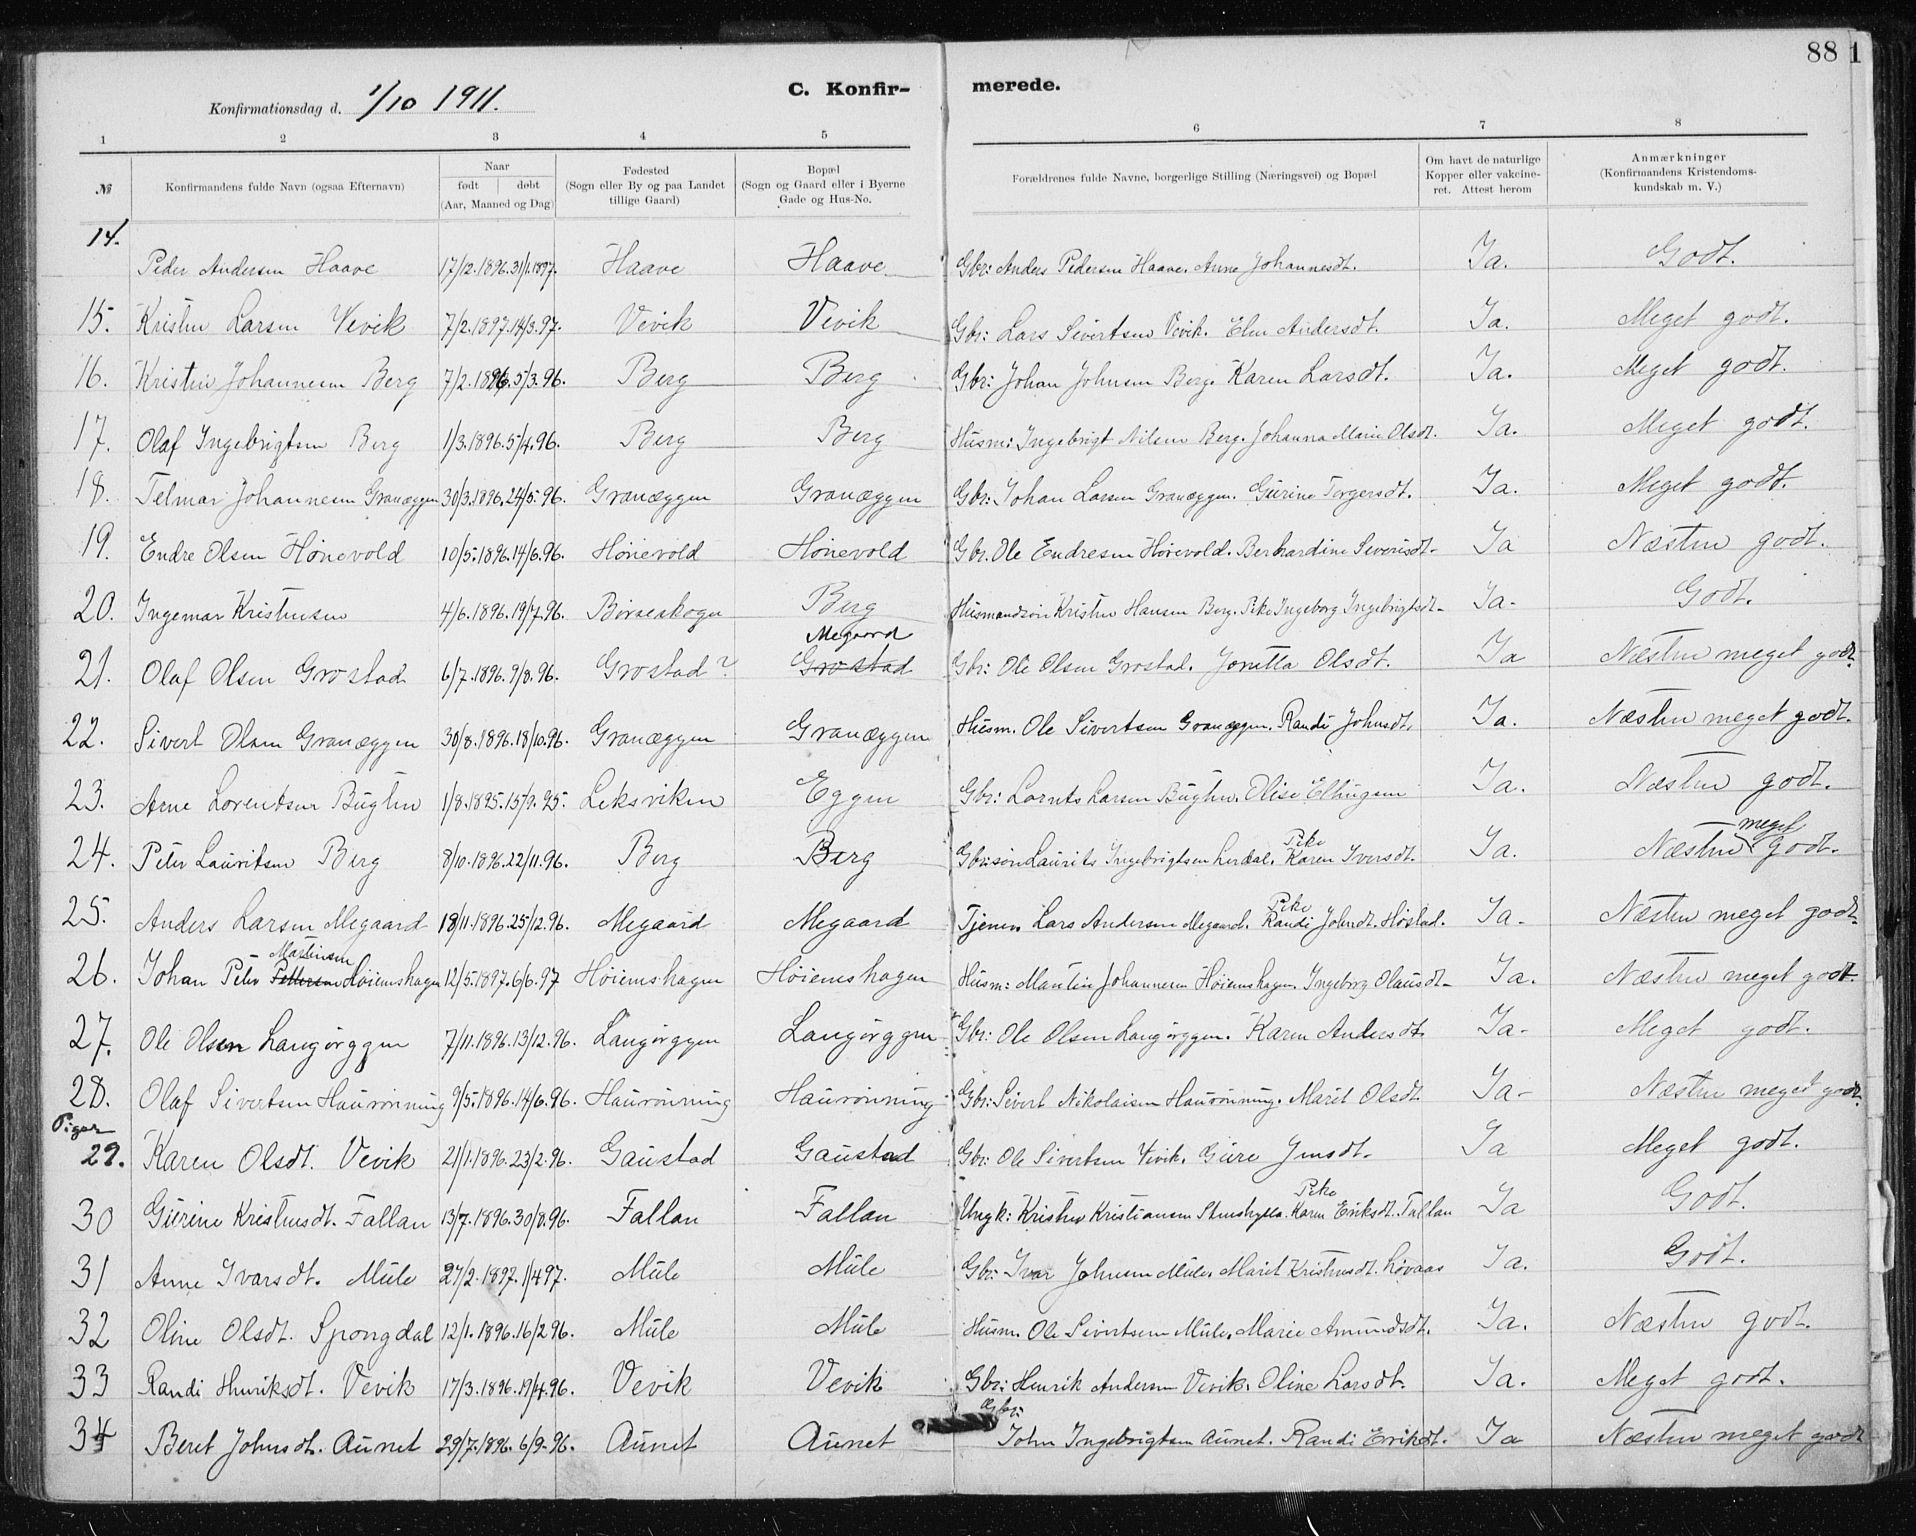 88 1
Konfirmationsdag d. 1/10 1911. C. Konfir- merede.
1 2 3 4 5 6 7 8
№ Konfirmandens fulde Navn (ogsaa Efternavn) Naar født døbt (Aar, Maaned og Dag) Fødested (Sogn eller By og paa Landet tillige Gaard) Bopæl (Sogn og Gaard eller i Byerne Gade og Hus-No. Forældrenes fulde Navne, borgerlige Stilling (Næringsvei) og Bopæl Om havt de naturlige Kopper eller vakcineret. Attest herom Anmærkninger (Konfirmandens Kristendomskundskab m. V.)
14. Peder Andersen Haave 17/12.1896. 31/1.1897. Haave Haave Gbr: Anders Pedersen Haave. Anne Johannesdt. Ja. Godt.
15. Kristen Larsen Vevik 7/2.1897. 14/3.97. Vevik Vevik Gbr: Lars Sivertsen Vevik. Elen Andersdt. Ja. Meget godt.
16. Kristen Johannesen Berg 7/2.1896. 5/3.96. Berg Berg Gbr: Johan Johnsen Berg. Karen Larsdt. Ja. Meget godt.
17. Olaf Ingebrigtsen Berg 1/3.1896. 5/4.96. Berg Berg Husm: Ingebrigt Nilsen Berg. Johanna Marie Olsdt. Ja. Meget godt.
18. Telmar Johannesen Granæggen 30/3.1896. 24/5.96. Granæggen Granæggen Gbr: Johan Larsen Granæggen. Gurine Torgersdt. Ja. Meget godt.
19. Endre Olsen Hønevold 10/5.1896. 14/6.96. Hønevold Hønevold Gbr. Ole Endresen Hønevold. Berhardine Siverisdt. Ja Næsten godt.
20. Ingemar Kristensen 4/6.1896. 19/7.96. Børseskogn Berg Husmandssøn Kristen Hansen Berg. Pike Ingeborg Ingebrigtsdt. Ja- Godt.
21. Olaf Olsen Grostad 6/7.1896. 9/8.96. Grostad? Megaard Grostad Gbr: Ole Olsen Grostad. Jonetta Olsdt. Ja Næsten meget godt.
22. Sivert Olsen Granæggen 30/8.1896. 18/10.96. Granæggen Granæggen Husm. Ole Sivertsen Granæggen. Randi Johnsdt. Ja. Næsten meget godt.
23. Arne Lorentsen Bugten 1/8.1895. 15/9.95. Leksviken Eggen Gbr: Lornts Larsen Bugten. Olise Ellingsen Ja. Næsten godt.
24. Peter Lauritsen Berg 8/10.1896. 22/11.96. Berg Berg Gbr:søn Laurits Ingebrigtsen Lerdal. Pike Karen Iversdt. Ja. Næsten meget godt.
25. Anders Larsen Megaard 18/11.1896. 25/12.96. Megaard Megaard Tjener Lars Andersen Megaard. Pike Randi Johndt. Høstad. Ja- Næsten meget godt.
26. Johan Peter Martinsen Pettersen Høiemshagen 12/5.1897. 6/6.97 Høiemshagen Høiemshagen Husm: Martin Johannesen Høiemshagen. Ingeborg Olausdt- Ja. Næsten meget godt.
27. Ole Olsen Langørggen 7/11.1896. 13/12.96. Langørggen Langørggen Gbr: Ole Olsen Langørggen. Karen Andersdt. Ja- Meget godt.
28. Olaf Sivertsen Haurønning 9/5.1896. 14/6.96. Haurønning Haurønning Gbr: Sivert Nikolaisen Haurønning. Marit Olsdt. Ja- Næsten meget godt.
Piger
29. Karen Olsdt. Vevik 21/1.1896. 23/2.96. Gaustad Gaustad Gbr: Ole Sivertsen Vevik. Gure Jensdt. Ja Meget godt.
30 Gurine Kristensdt. Fallan 13/7.1896. 30/8.96. Fallan Fallan Ungk: Kristen Kristiansen Stenshylla. Pike Karen Eriksdt. Fallan Ja Godt.
31 Anne Ivarsdt. Mule 27/2.1897. 1/4 97. Mule Mule Gbr: Ivar Johnsen Mule. Marit Kristensdt. Løvaas Ja. Godt.
32 Oline Olsdt. Spongdal 12/1.1896. 16/2.96. Mule Mule Husm. Ole Sivertsen Mule. Marie Amundsdt. Ja. Næsten godt.
33 Randi Henriksdt. Vevik 17/3.1896. 19/4.96. Vevik Vevik Gbr: Henrik Andersen Vevik. Oline Larsdt. Ja. Meget godt.
34 Beret Johnsdt. Aunet 29/7.1896. 6/9.96. Aunet Aunet Gbr: John Ingebrigtsen Aunet. Randi Eriksdt. Ja Næsten meget godt